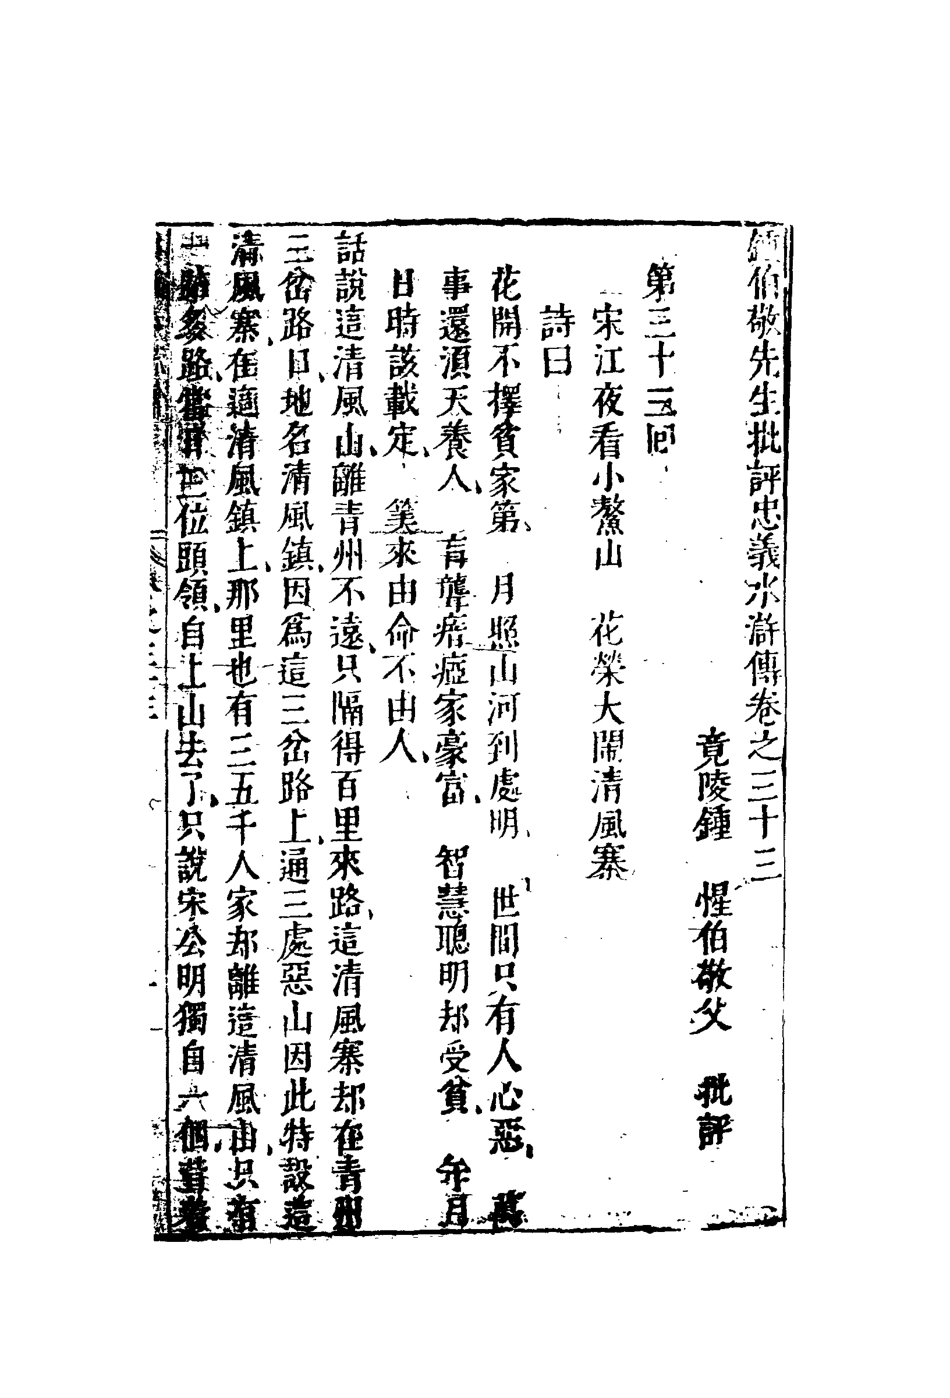 鍾伯敬先生批評忠義水滸傳卷之三十三
竟陵鍾 惺伯敬父 批評
第三十三回
宋江夜看小鰲山 花榮大鬧清風寨
詩曰
花開不擇貧家第 月照山河到處明 世間只有人心惡 萬
事還須天養人 盲聾瘖瘂家豪富 智慧聰明却受貧 年月
日時該載定 筭來由命不由人
話說這清風山離青州不遠只隔得百里來路這清風寨却在青州
三岔路口地名清風鎮因爲這三岔路上通三處惡山因此特設這
清風寨在這清風鎮上那里也有三五千人家却離這清風山只有
一站多路當日三位頭領自上山去了只說宋公明獨自一個背着